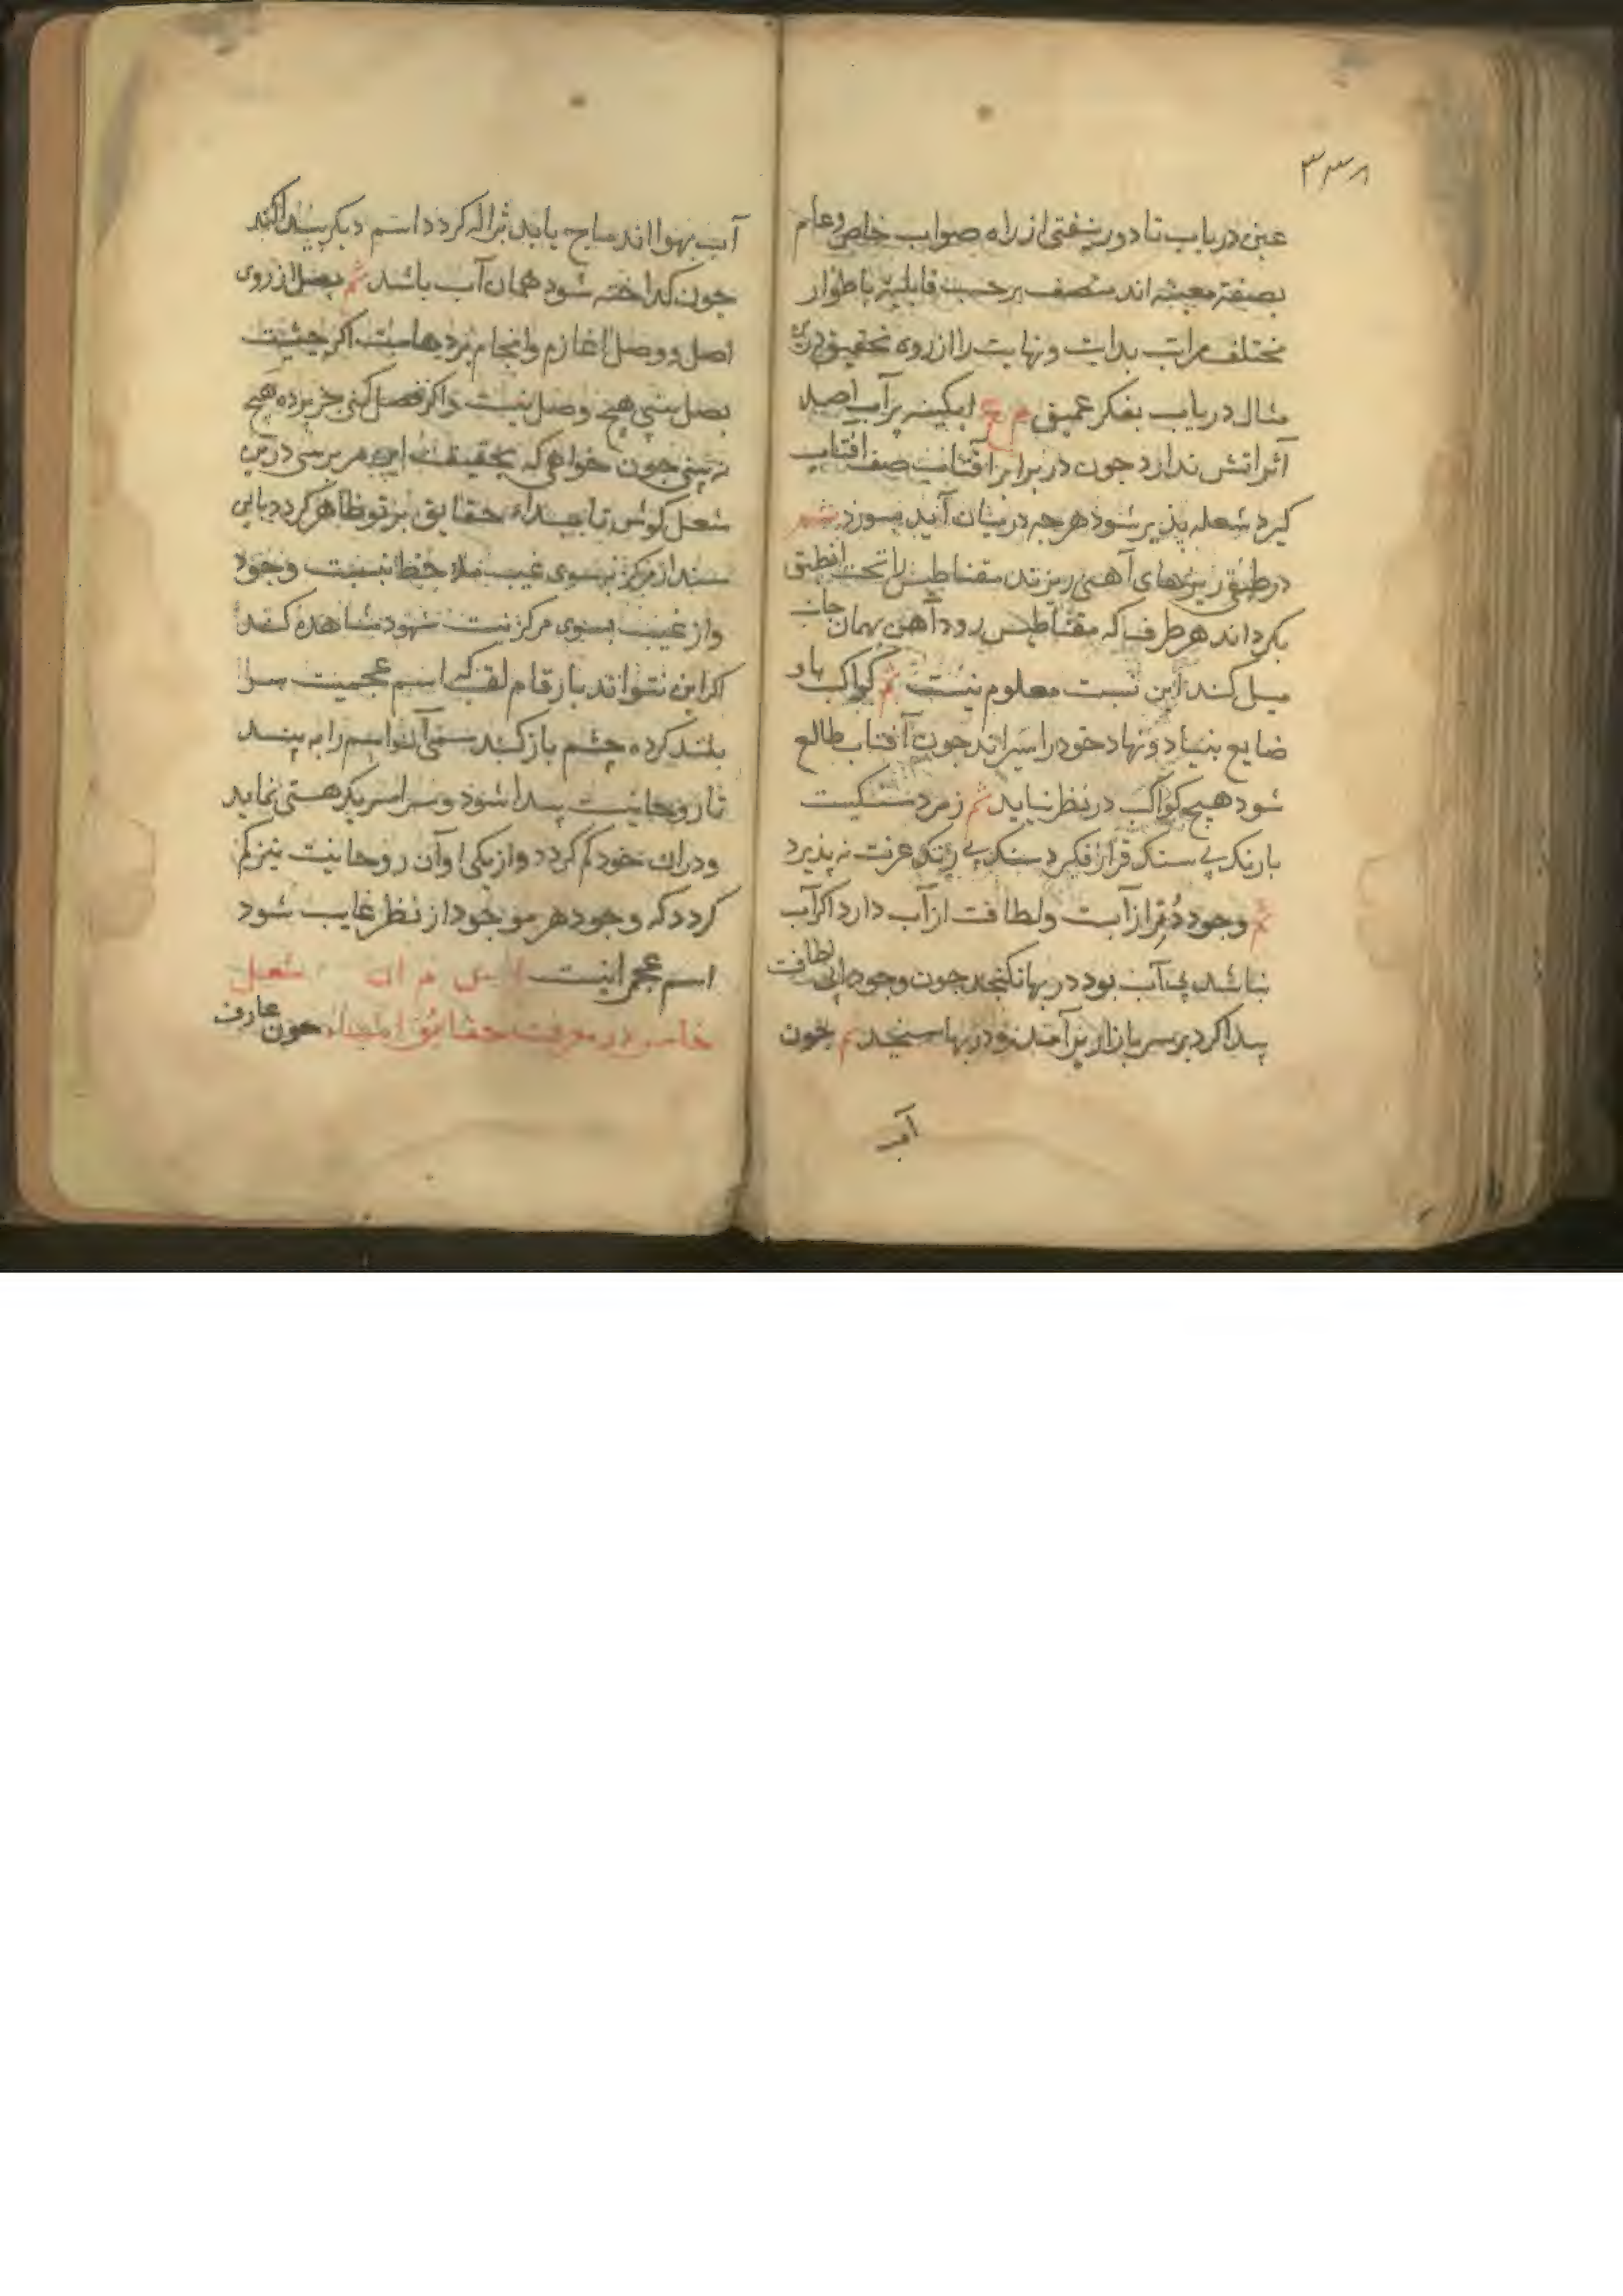 ۳۳۸
عینی دریاب تا دور نیفتی از راه صواب خاص و عام
بصفتی معیشه اند متصف بر حسب قابلیت باطوار
مختلف مراتب بدایت و نهایت را از روه تحقیق درین
مثال دریاب بفکر عمیق م ع ابکینه پر آب اصلا
اثر اتش ندارد جون در برابر آفتاب صفت افتاب
کیرد شعله پذیر شود هرجه در میان آید بسوزد ثم
در طبق ریزهای آهنی ریزند مقناطیس را تحت ان طبق
بکرداند هر طرف که مقناطیس رود آهن بهمان جانب
میل کند این نسبت معلوم نیست ثم کواکب باد
ضایع بنیاد و نهاد خود را سیراند جون آفتاب طالع
شود هیچ کواکب در نظر نیاید ثم زمرد سنکیست
با رنک بی سنک قرار نکیرد سنک بی رنک عزت نپذیرد
ثم وجود در از آبت و لطافت از آب دارد اکر آب
نباشد بی آب بود در بها نکنجد جون وجود لطافت
پیدا کرد بر سر بازار برآمد و در بها سنجد ثم جون
آب
آب بهوا اند ماح یابد ژاله کردد اسم دیکر پیدا کند
جون کداخته شود همان آب باشد ثم بصل از روی
اصل و وصل اغاز و انجام پردهاست اکر جشت
بصل بینی هیچ وصل نیست و اکر فصل کنی جز پرده هیچ
نه بینی جون خواهی که بحقیقت این بررسی درین
شعل کوش تا حقایق بر تو ظاهر کردد
از مرکز بسوی غیب ملاحظا نیست وجود
و از غیب بسوی مرکز نیست شهود مشاهده کند
اکر این نتواند بارقام لقب که اسم عجمیت سر
بلند کرده چشم باز کند آن اسم را به بیند
تا روحانیت پیدا شود و سراسر یک هستی نماید
و دران خود کم کردد و از یکی او آن روحانیت نیز کم
کردد که وجود هر موجود از نظر غایب شود
اسم عجمی اینست م ان شعل
خامس در معرفت حقائق اشیاء جون عارف